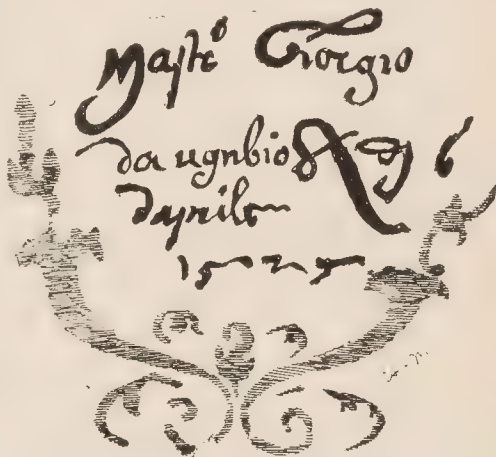 Maſtº Giorgio
da ugubio A dj 6
daprile
1525